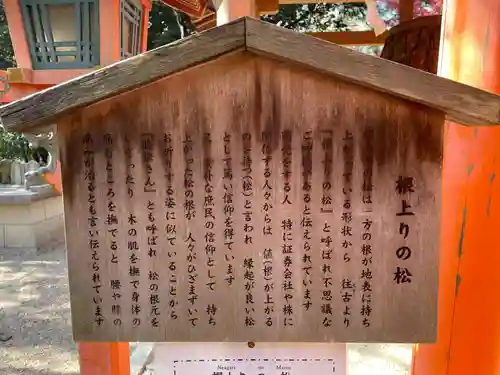 根上りの松
の松は一方の根が地表に持ち
上がっている形状から 往古より
『根上りの松』と呼ばれ不思議な
ご あると伝えられています
をする人 特に証券会社や株に
する人々からは 値(根)が上がる
のを待つ(松)と言われ 縁起が良い松
として篤い信仰を得ています
朴な庶民の信仰として 持ち
上がった松の根が 人々がひざまずいて
お祈りする姿に似ていることから
『 さん』とも呼ばれ 松の根元を
たり 木の肌を撫でて身体の
ところを撫でると 腰や膝の
が治るとも言い伝えられています
Neagari no Matsu
根上りの松